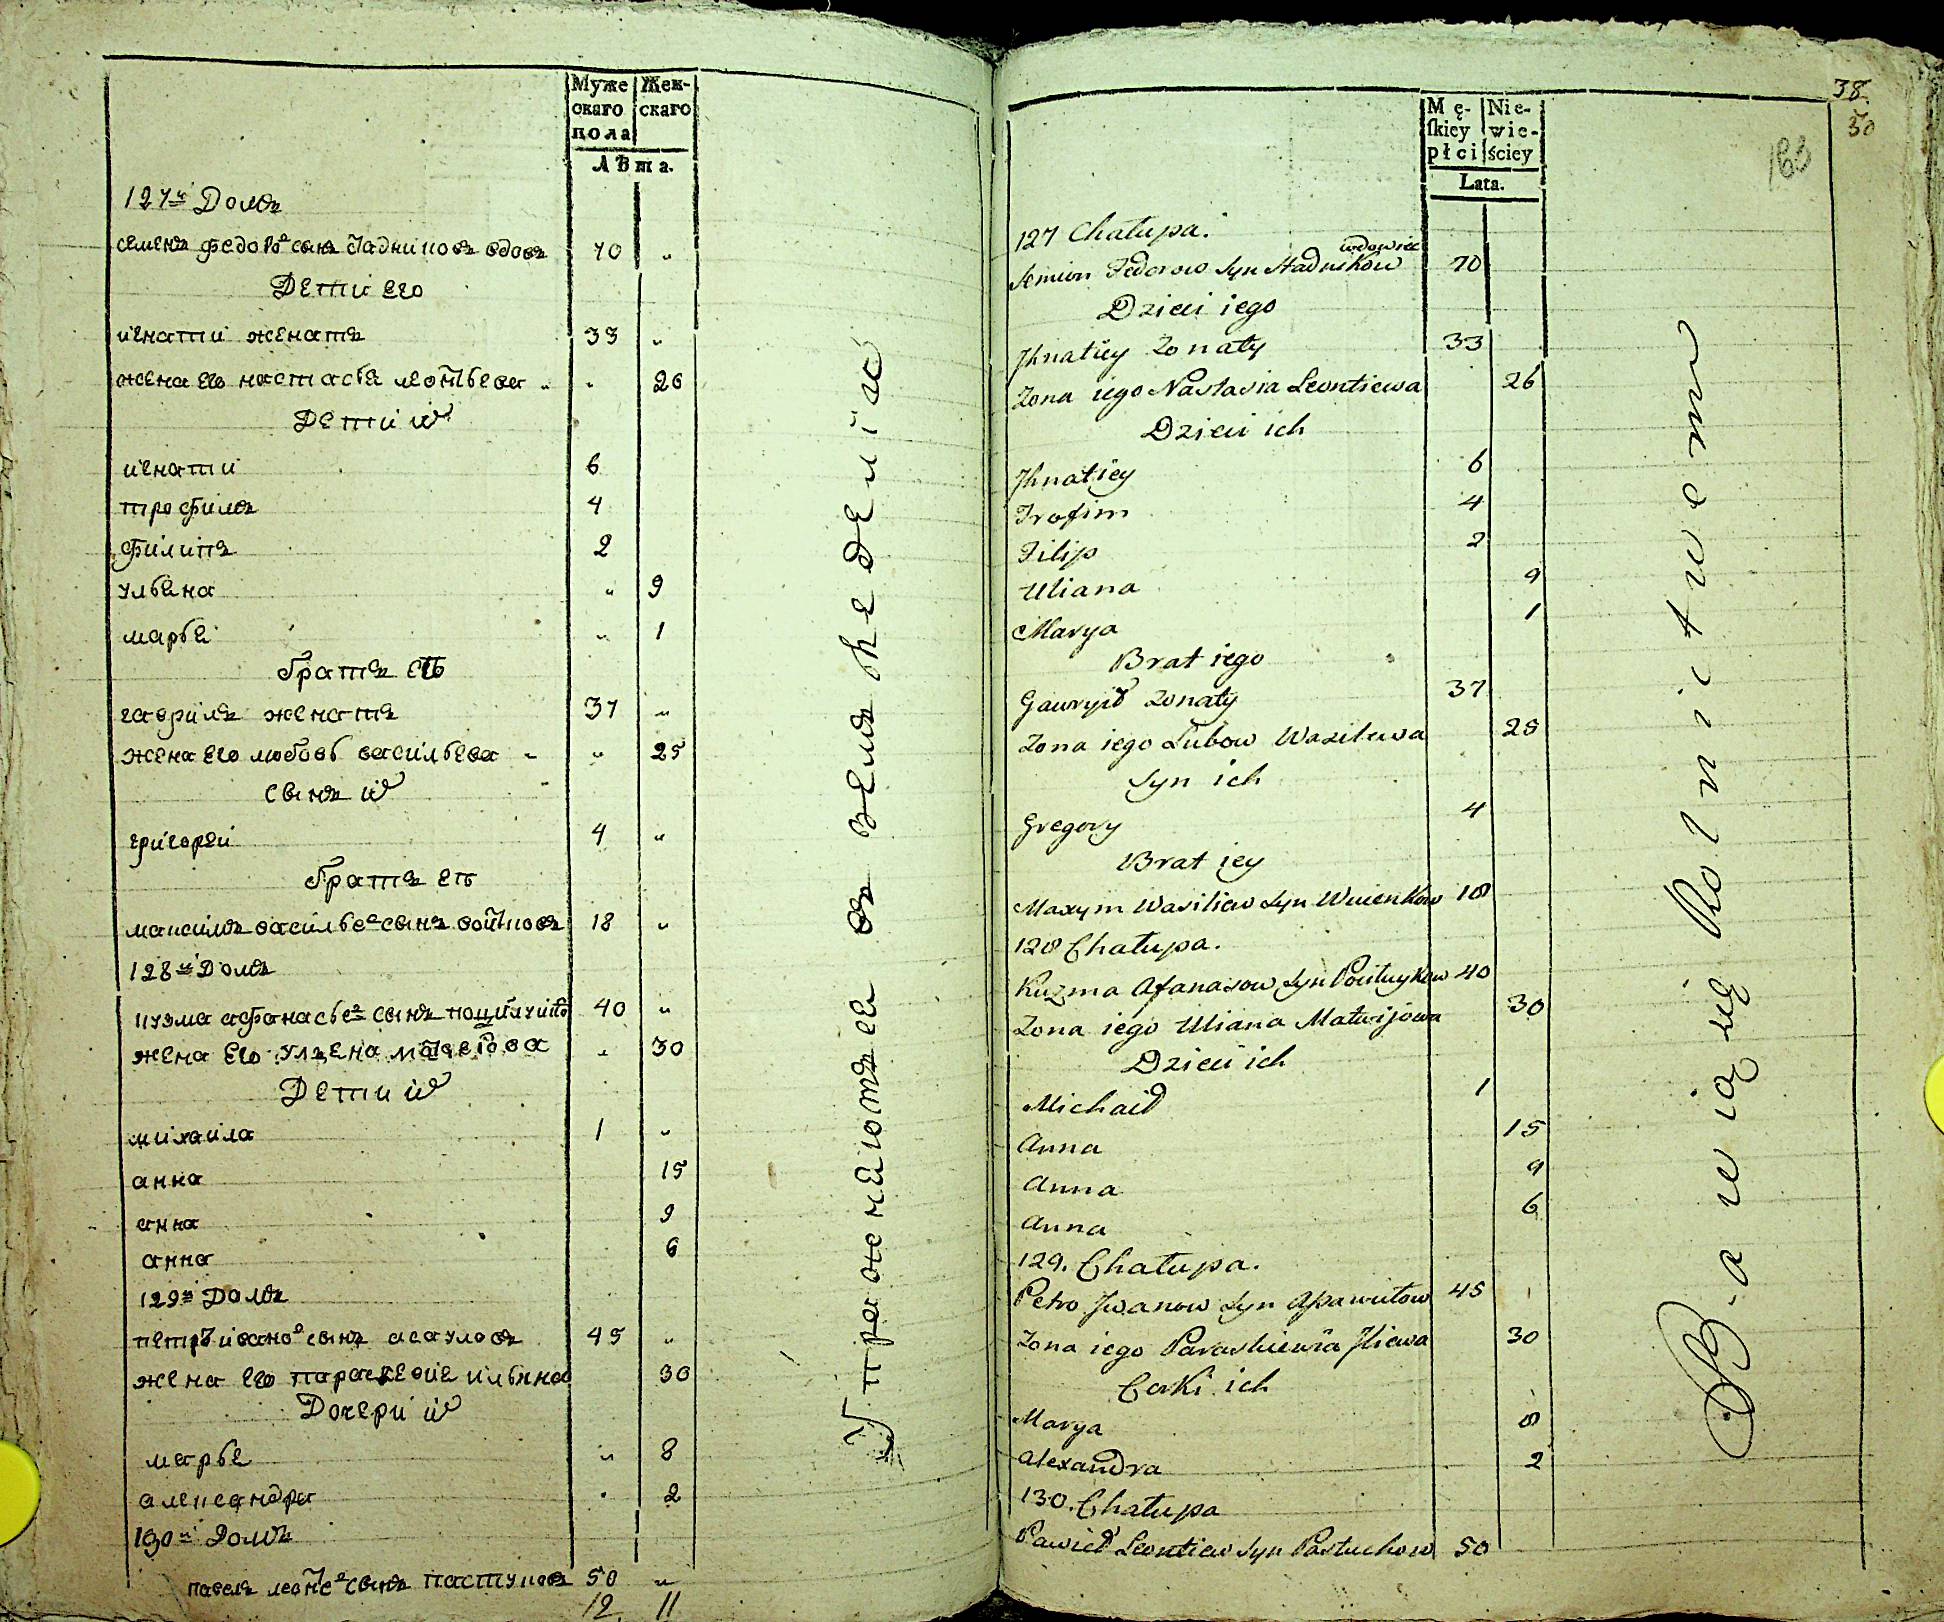 Муже
скаго
пола
Жен-
скаго
Лѣта.
127й Домъ
семенъ федоровъ сынъ стадниковъ вдовъ 70 „
Дети его
игнатий женатъ 33 „
жена его настасья леонтьева „ „ 26
Дети их
игнатий 6
трофимъ 4
филипъ 2
ульяна „ 9
марья „ 1
братъ его
гаврила женатъ 37 „
жена его любовь васильева „ „ 25
сынъ их
григорей 4 „
братъ ея
максимъ васильевъ сынъ 18 „
128й Домъ
кузма афанасьевъ сынъ 40 „
жена его ульяна матвеева „ 30
Дети их
михаила 1 „
анна 15
анна 9
анна 6
129й Домъ
петръ ивановъ сынъ асауловъ 45 „
жена его параскевия ильина 30
Дочери их
марья „ 8
александра „ 2
130й Домъ
павелъ леонтьевъ сынъ пастуховъ 50 „
12. 11
Упражняются въ земледелии
38.
50
163
Mę-
ſkiey
płci
Nie-
wie-
ściey
Lata.
127 Chałupa.
wdowiec
Semion Fedorow Syn Stadnikow 70
Dzieci iego
Jhnatiey Zonaty 33
Zona iego Nastasia Leontiewa 26
Dzieci ich
Jhnatiey 6
Trofim 4
Filip 2
Uliana 9
Marya 1
Brat iego
Gawryił Zonaty 37
Zona iego Lubow Wasilewa 25
Syn ich
Gregory 4
Brat iey
Maxym Wasiliew Syn 18
128 Chałupa.
Kuzma Afanasow Syn 40
Zona iego Uliana Matwijowa 30
Dzieci ich
Michaił 1
Anna 15
Anna 9
Anna 6
129. Chałupa.
Petro Jwanow Syn 45
Zona iego Paraskiewia Jliewa 30
Corki ich
Marya 8
Alexandra 2
130. Chałupa
Pawieł Leontiew Syn Pastuchow 50
Bawią się Rolnictwem